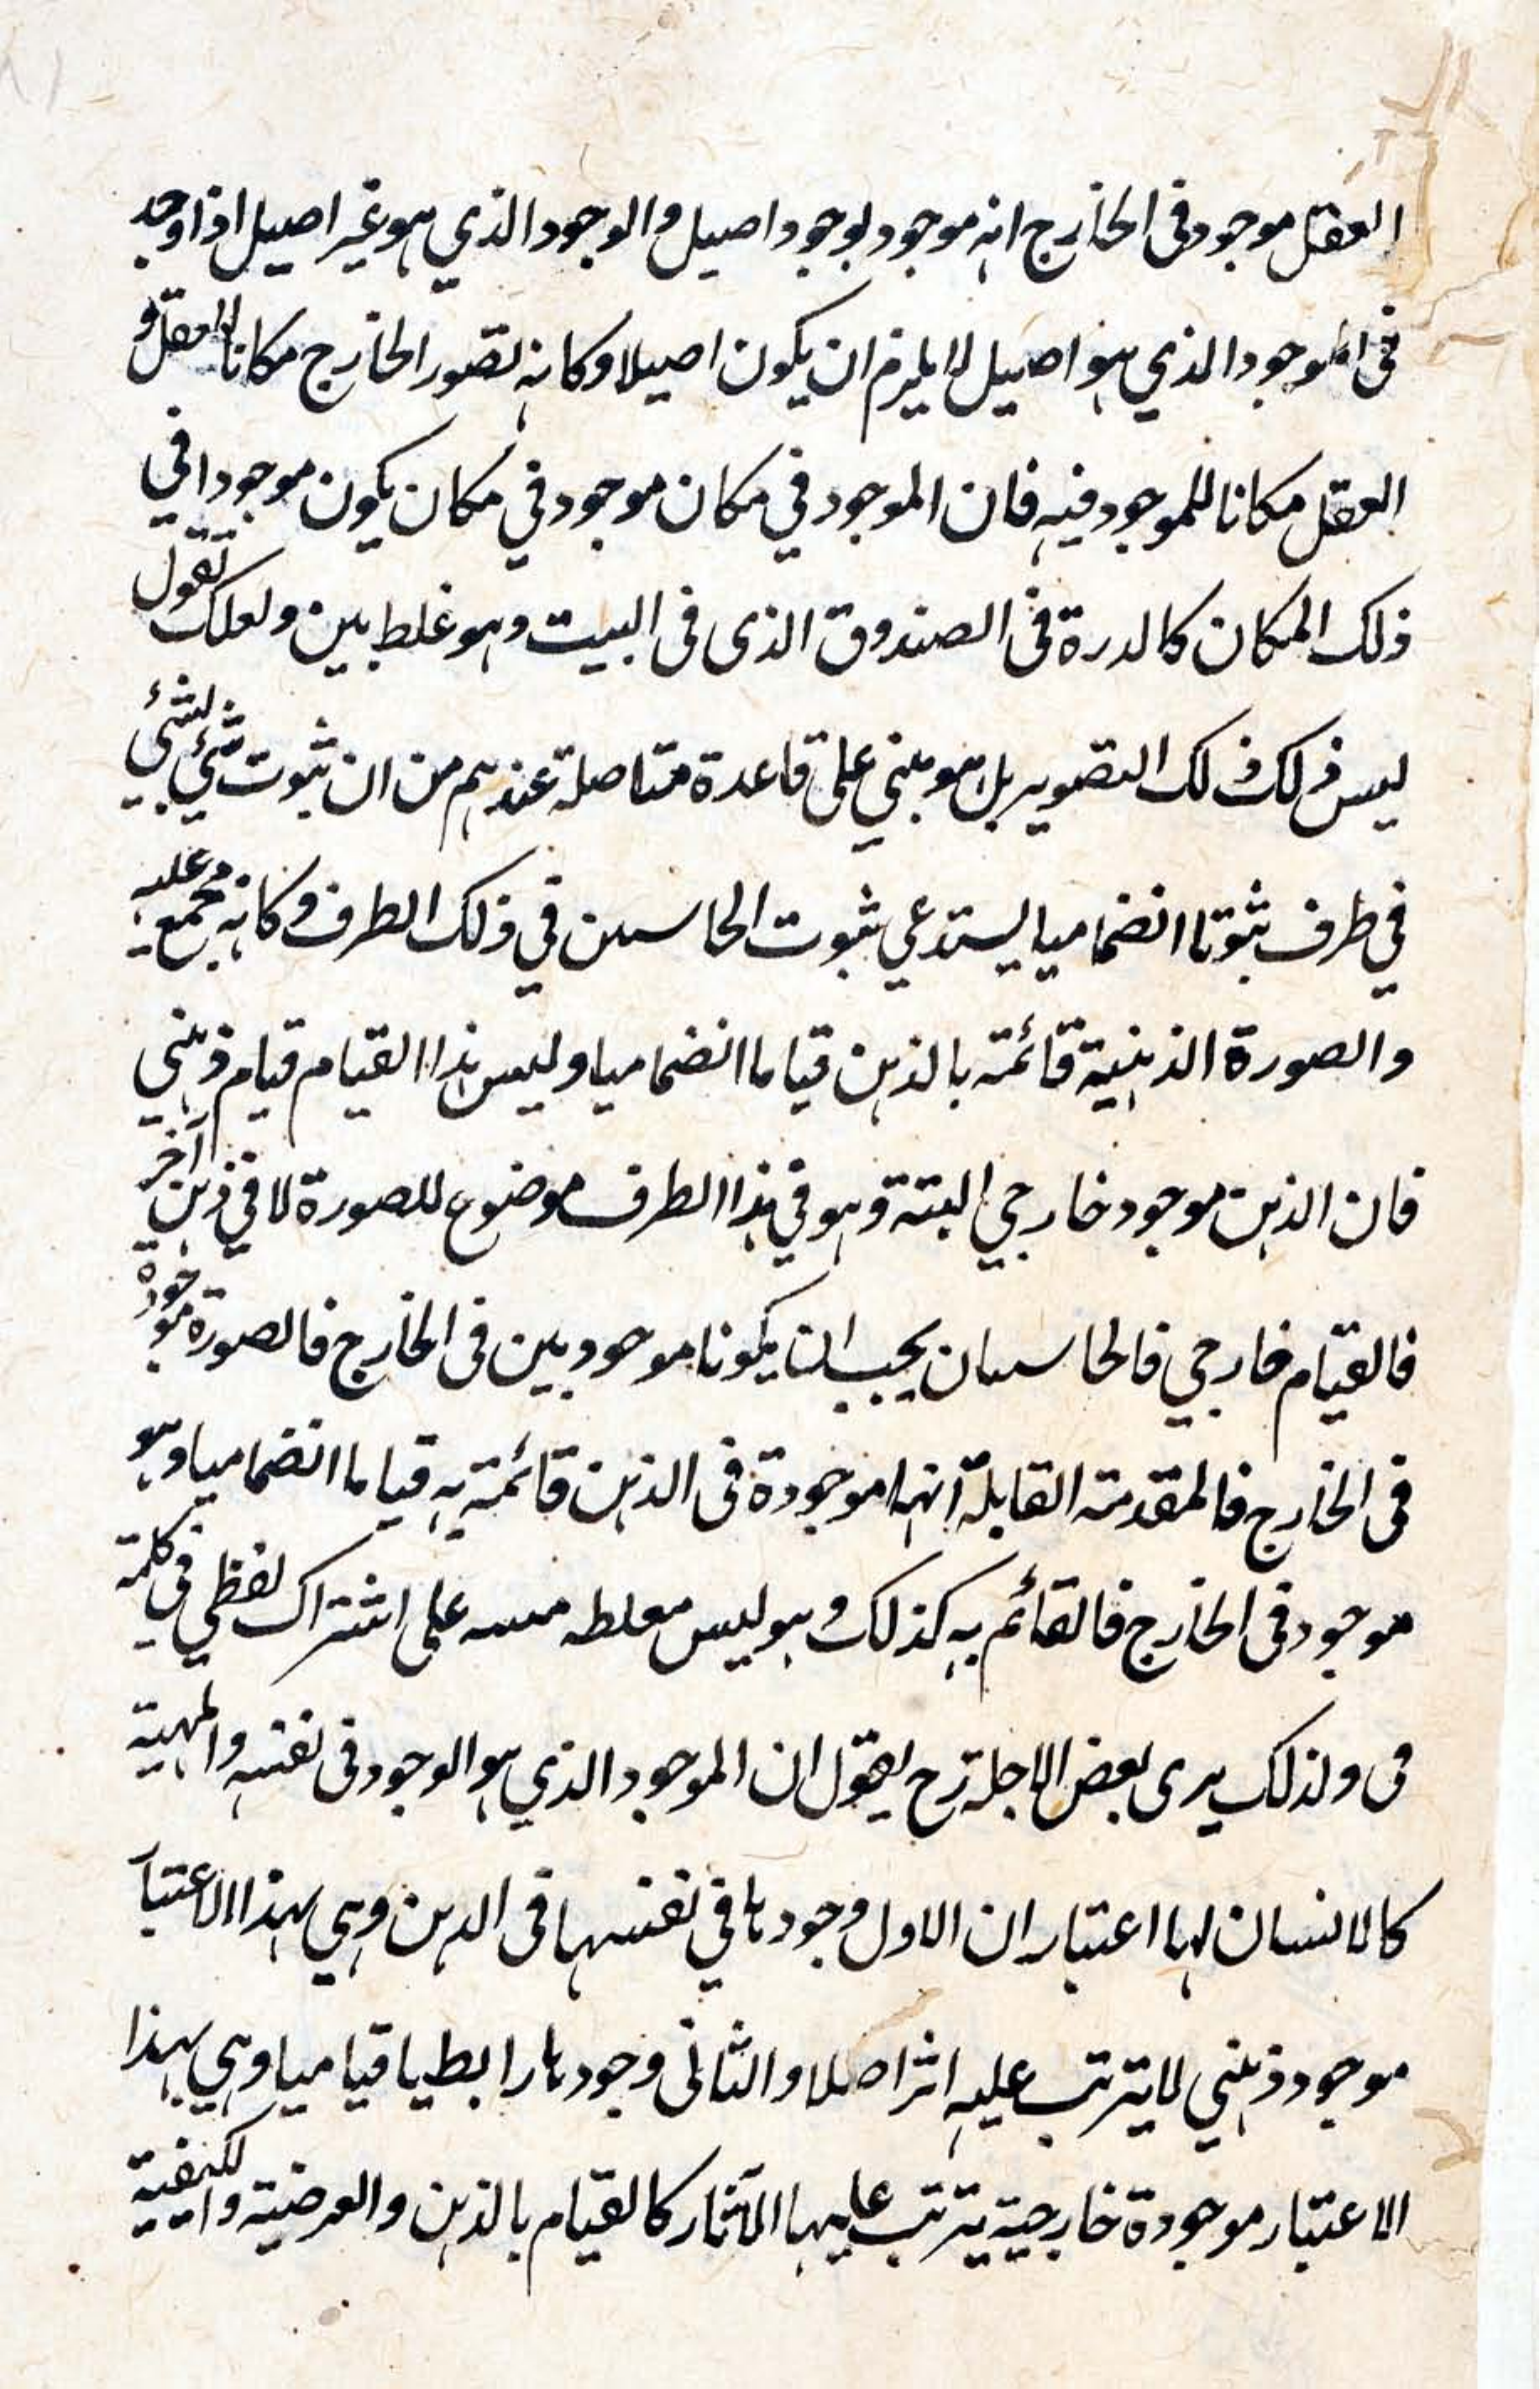 العقل موجود فى الخارج انه موجود بوجود اصيل والوجود الذي هو غير اصيل اذا وجد
فى الموجود الذي هو اصيل لا يلزم ان يكون اصيلا وكانه تصور الخارج مكانا للعقل و
العقل مكانا للموجود فيه فان الموجود في مكان موجود في مكان يكون موجودا في
ذلك المكان كالدرة فى الصندوق الذى فى البيت وهو غلط بين ولعلك تقول
ليس ذلك ذلك التصوير بل هو مبني على قاعدة متاصلة عندهم من ان ثبوت شيئ لشيئ
في ظرف ثبوتا انضماميا يستدعي ثبوت الحاسىىن في ذلك الظرف وكانه مجمع عليه
والصورة الذهنية قائمة بالذهن قياما انضماميا وليس هذا القيام قيام ذهني
فان الذهن موجود خارجي البتة وهو في هذا الظرف موضوع للصورة لا في ذهن آخر
فالقيام خارجي فالحاسىان يجب ان يكونا موجودين فى الخارج فالصورة موجودة
فى الخارج فالمقدمة القابلة انها موجودة فى الذهن قائمة به قياما انضماميا وهو
موجود فى الخارج فالقائم به كذلك وهو ليس مغلطه على اشتراك لفظي في كلمة
فى ولذلك يرى بعض الاجلة رح يقول ان الموجود الذي هو الوجود فى نفسه والمهية
كالانسان لها اعتباران الاول وجودها في نفسها فى الذهن وهي بهذا الاعتبار
موجود ذهني لا يترتب عليه اثر اصلا والثانى وجودها رابطيا قياميا وهي بهذا
الاعتبار موجودة خارجية يترتب عليها الآثار كالقيام بالذهن والعرضية والكيفية